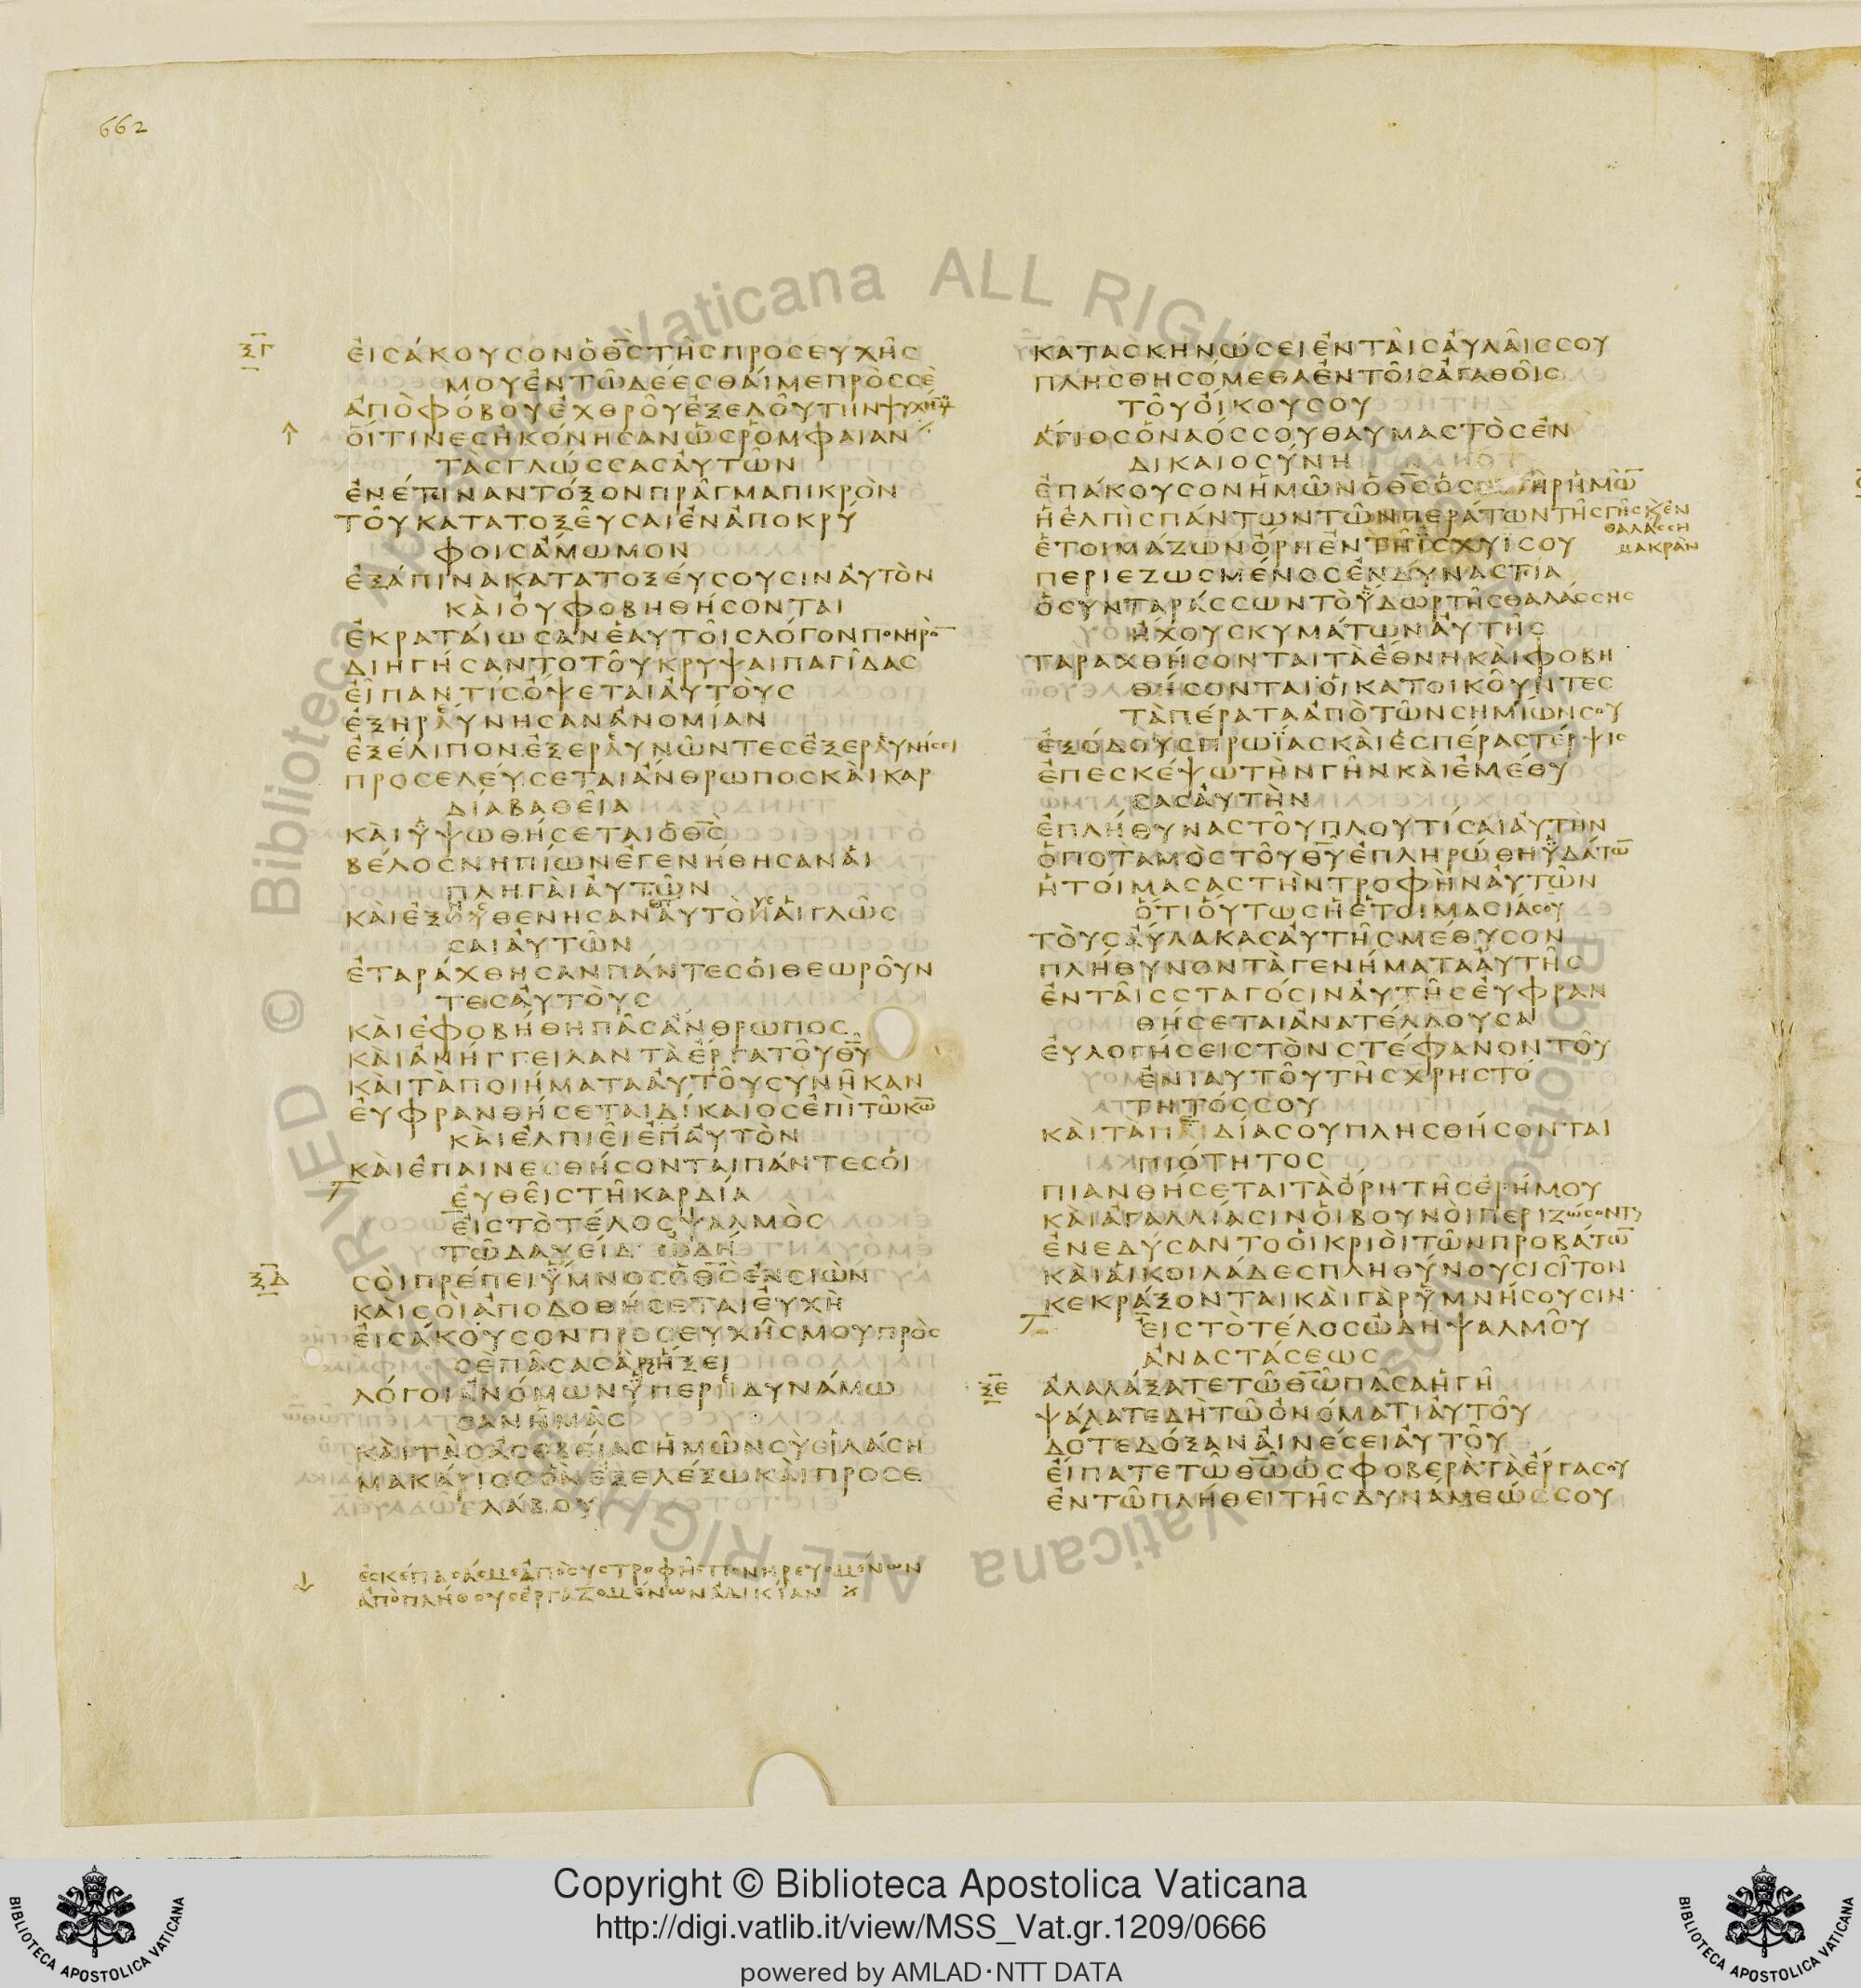 662
ΞΓ
ΕΙΣΑΚΟΥΣΟΝ Ο ΘΣ ΤΗΣ ΠΡΟΣΕΥΧΗΣ
ΜΟΥ ΕΝ ΤΩ ΔΕΕΣΘΑΙ ΜΕ ΠΡΟΣ ΣΕ
ΑΠΟ ΦΟΒΟΥ ΕΧΘΡΟΥ ΕΞΕΛΟΥ ΤΗΝ ΨΥΧΗΝ
ΟΙΤΙΝΕΣ ΗΚΟΝΗΣΑΝ ΩΣ ΡΟΜΦΑΙΑΝ
ΤΑΣ ΓΛΩΣΣΑΣ ΑΥΤΩΝ
ΕΝΕΤΙΝΑΝ ΤΟΞΟΝ ΠΡΑΓΜΑ ΠΙΚΡΟΝ
ΤΟΥ ΚΑΤΑΤΟΞΕΥΣΑΙ ΕΝ ΑΠΟΚΡΥ
ΦΟΙΣ ΑΜΩΜΟΝ
ΕΞΑΠΙΝΑ ΚΑΤΑΤΟΞΕΥΣΟΥΣΙΝ ΑΥΤΟΝ
ΚΑΙ ΟΥ ΦΟΒΗΘΗΣΟΝΤΑΙ
ΕΚΡΑΤΑΙΩΣΑΝ ΕΑΥΤΟΙΣ ΛΟΓΟΝ ΠΟΝΗΡΟ
ΔΙΗΓΗΣΑΝΤΟ ΤΟΥ ΚΡΥΨΑΙ ΠΑΓΙΔΑΣ
ΕΙΠΑΝ ΤΙΣ ΟΨΕΤΑΙ ΑΥΤΟΥΣ
ΕΞΗΡΑΥΝΗΣΑΝ ΑΝΟΜΙΑΝ
ΕΞΕΛΙΠΟΝ ΕΞΕΡΑΥΝΩΝΤΕΣ ΕΞΕΡΑΥΝΗΣΕΙ
ΠΡΟΣΕΛΕΥΣΕΤΑΙ ΑΝΘΡΩΠΟΣ ΚΑΙ ΚΑΡ
ΔΙΑ ΒΑΘΕΙΑ
ΚΑΙ ΥΨΩΘΗΣΕΤΑΙ Ο ΘΣ
ΒΕΛΟΣ ΝΗΠΙΩΝ ΕΓΕΝΗΘΗΣΑΝ ΑΙ
ΠΛΗΓΑΙ ΑΥΤΩΝ
ΚΑΙ ΕΞΟΥΘΕΝΗΣΑΝ ΑΥΤΟΝ ΑΙ ΓΛΩΣ
ΣΑΙ ΑΥΤΩΝ
ΕΤΑΡΑΧΘΗΣΑΝ ΠΑΝΤΕΣ ΟΙ ΘΕΩΡΟΥΝ
ΤΕΣ ΑΥΤΟΥΣ
ΚΑΙ ΕΦΟΒΗΘΗ ΠΑΣ ΑΝΘΡΩΠΟΣ
ΚΑΙ ΑΝΗΓΓΕΙΛΑΝ ΤΑ ΕΡΓΑ ΤΟΥ ΘΥ
ΚΑΙ ΤΑ ΠΟΙΗΜΑΤΑ ΑΥΤΟΥ ΣΥΝΗΚΑΝ
ΕΥΦΡΑΝΘΗΣΕΤΑΙ ΔΙΚΑΙΟΣ ΕΠΙ ΤΩ ΚΩ
ΚΑΙ ΕΛΠΙΕΙ ΕΠ ΑΥΤΟΝ
ΚΑΙ ΕΠΑΙΝΕΣΘΗΣΟΝΤΑΙ ΠΑΝΤΕΣ ΟΙ
ΕΥΘΕΙΣ ΤΗ ΚΑΡΔΙΑ
ΕΙΣ ΤΟ ΤΕΛΟΣ ΨΑΛΜΟΣ
ΤΩ ΔΑΥΕΙΔ ΩΔΗ
ΞΔ
ΣΟΙ ΠΡΕΠΕΙ ΥΜΝΟΣ Ο ΘΣ ΕΝ ΣΙΩΝ
ΚΑΙ ΣΟΙ ΑΠΟΔΟΘΗΣΕΤΑΙ ΕΥΧΗ
ΕΙΣΑΚΟΥΣΟΝ ΠΡΟΣΕΥΧΗΣ ΜΟΥ ΠΡΟΣ
ΣΕ ΠΑΣΑ ΣΑΡΞ ΗΞΕΙ
ΛΟΓΟΙ ΑΝΟΜΩΝ ΥΠΕΡΗΔΥΝΑΜΩ
ΣΑΝ ΗΜΑΣ
ΚΑΙ ΤΑΣ ΑΣΕΒΕΙΑΣ ΗΜΩΝ ΣΥ ΙΛΑΣΗ
ΜΑΚΑΡΙΟΣ ΟΝ ΕΞΕΛΕΞΩ ΚΑΙ ΠΡΟΣΕ
ΛΑΒΟΥ
ΕΣΚΕΠΑΣΑΣ ΜΕ ΑΠΟ ΣΥΣΤΡΟΦΗΣ ΠΟΝΗΡΕΥΟΜΕΝΩΝ
ΑΠΟ ΠΛΗΘΟΥΣ ΕΡΓΑΖΟΜΕΝΩΝ ΑΔΙΚΙΑΝ
ΚΑΤΑΣΚΗΝΩΣΕΙ ΕΝ ΤΑΙΣ ΑΥΛΑΙΣ ΣΟΥ
ΠΛΗΣΘΗΣΟΜΕΘΑ ΕΝ ΤΟΙΣ ΑΓΑΘΟΙΣ
ΤΟΥ ΟΙΚΟΥ ΣΟΥ
ΑΓΙΟΣ Ο ΝΑΟΣ ΣΟΥ ΘΑΥΜΑΣΤΟΣ ΕΝ
ΔΙΚΑΙΟΣΥΝΗ
ΕΠΑΚΟΥΣΟΝ ΗΜΩΝ Ο ΘΣ Ο ΣΩΤΗΡ ΗΜΩ
Η ΕΛΠΙΣ ΠΑΝΤΩΝ ΤΩΝ ΠΕΡΑΤΩΝ ΤΗΣ ΓΗΣ Κ ΕΝ
ΘΑΛΑΣΣΗ
ΜΑΚΡΑΝ
ΕΤΟΙΜΑΖΩΝ ΟΡΗ ΕΝ ΤΗ ΙΣΧΥΙ ΣΟΥ
ΠΕΡΙΕΖΩΣΜΕΝΟΣ ΕΝ ΔΥΝΑΣΤΙΑ
Ο ΣΥΝΤΑΡΑΣΣΩΝ ΤΟ ΥΔΩΡ ΤΗΣ ΘΑΛΑΣΣΗΣ
ΗΧΟΥΣ ΚΥΜΑΤΩΝ ΑΥΤΗΣ
ΤΑΡΑΧΘΗΣΟΝΤΑΙ ΤΑ ΕΘΝΗ ΚΑΙ ΦΟΒΗ
ΘΗΣΟΝΤΑΙ ΟΙ ΚΑΤΟΙΚΟΥΝΤΕΣ
ΤΑ ΠΕΡΑΤΑ ΑΠΟ ΤΩΝ ΣΗΜΙΩΝ ΣΟΥ
ΕΞΟΔΟΥΣ ΠΡΩΙΑΣ ΚΑΙ ΕΣΠΕΡΑΣ ΤΕΡΨΙΣ
ΕΠΕΣΚΕΨΩ ΤΗΝ ΓΗΝ ΚΑΙ ΕΜΕΘΥ
ΣΑΣ ΑΥΤΗΝ
ΕΠΛΗΘΥΝΑΣ ΤΟΥ ΠΛΟΥΤΙΣΑΙ ΑΥΤΗΝ
Ο ΠΟΤΑΜΟΣ ΤΟΥ ΘΥ ΕΠΛΗΡΩΘΗ ΥΔΑΤΩ
ΗΤΟΙΜΑΣΑΣ ΤΗΝ ΤΡΟΦΗΝ ΑΥΤΩΝ
ΟΤΙ ΟΥΤΩΣ Η ΕΤΟΙΜΑΣΙΑ ΣΟΥ
ΤΟΥΣ ΑΥΛΑΚΑΣ ΑΥΤΗΣ ΜΕΘΥΣΟΝ
ΠΛΗΘΥΝΟΝ ΤΑ ΓΕΝΗΜΑΤΑ ΑΥΤΗΣ
ΕΝ ΤΑΙΣ ΣΤΑΓΟΣΙΝ ΑΥΤΗΣ ΕΥΦΡΑΝ
ΘΗΣΕΤΑΙ ΑΝΑΤΕΛΛΟΥΣΑ
ΕΥΛΟΓΗΣΕΙΣ ΤΟΝ ΣΤΕΦΑΝΟΝ ΤΟΥ
ΕΝΙΑΥΤΟΥ ΤΗΣ ΧΡΗΣΤΟ
ΤΗΤΟΣ ΣΟΥ
ΚΑΙ ΤΑ ΠΑΙΔΙΑ ΣΟΥ ΠΛΗΣΘΗΣΟΝΤΑΙ
ΠΙΟΤΗΤΟΣ
ΠΙΑΝΘΗΣΕΤΑΙ ΤΑ ΟΡΗ ΤΗΣ ΕΡΗΜΟΥ
ΚΑΙ ΑΓΑΛΛΙΑΣΙΝ ΟΙ ΒΟΥΝΟΙ ΠΕΡΙΖΩΣΟΝΤ
ΕΝΕΔΥΣΑΝΤΟ ΟΙ ΚΡΙΟΙ ΤΩΝ ΠΡΟΒΑΤΩ
ΚΑΙ ΑΙ ΚΟΙΛΑΔΕΣ ΠΛΗΘΥΝΟΥΣΙ ΣΙΤΟΝ
ΚΕΚΡΑΞΟΝΤΑΙ ΚΑΙ ΓΑΡ ΥΜΝΗΣΟΥΣΙΝ
ΕΙΣ ΤΟ ΤΕΛΟΣ ΩΔΗ ΨΑΛΜΟΥ
ΑΝΑΣΤΑΣΕΩΣ
ΞΕ
ΑΛΑΛΑΞΑΤΕ ΤΩ ΘΩ ΠΑΣΑ Η ΓΗ
ΨΑΛΑΤΕ ΔΗ ΤΩ ΟΝΟΜΑΤΙ ΑΥΤΟΥ
ΔΟΤΕ ΔΟΞΑΝ ΑΙΝΕΣΕΙ ΑΥΤΟΥ
ΕΙΠΑΤΕ ΤΩ ΘΩ ΩΣ ΦΟΒΕΡΑ ΤΑ ΕΡΓΑ ΣΟΥ
ΕΝ ΤΩ ΠΛΗΘΕΙ ΤΗΣ ΔΥΝΑΜΕΩΣ ΣΟΥ
Copyright © Biblioteca Apostolica Vaticana
http://digi.vatlib.it/view/MSS_Vat.gr.1209/0666
powered by AMLAD·NTT DATA
BIBLIOTECA APOSTOLICA VATICANA
BIBLIOTECA APOSTOLICA VATICANA